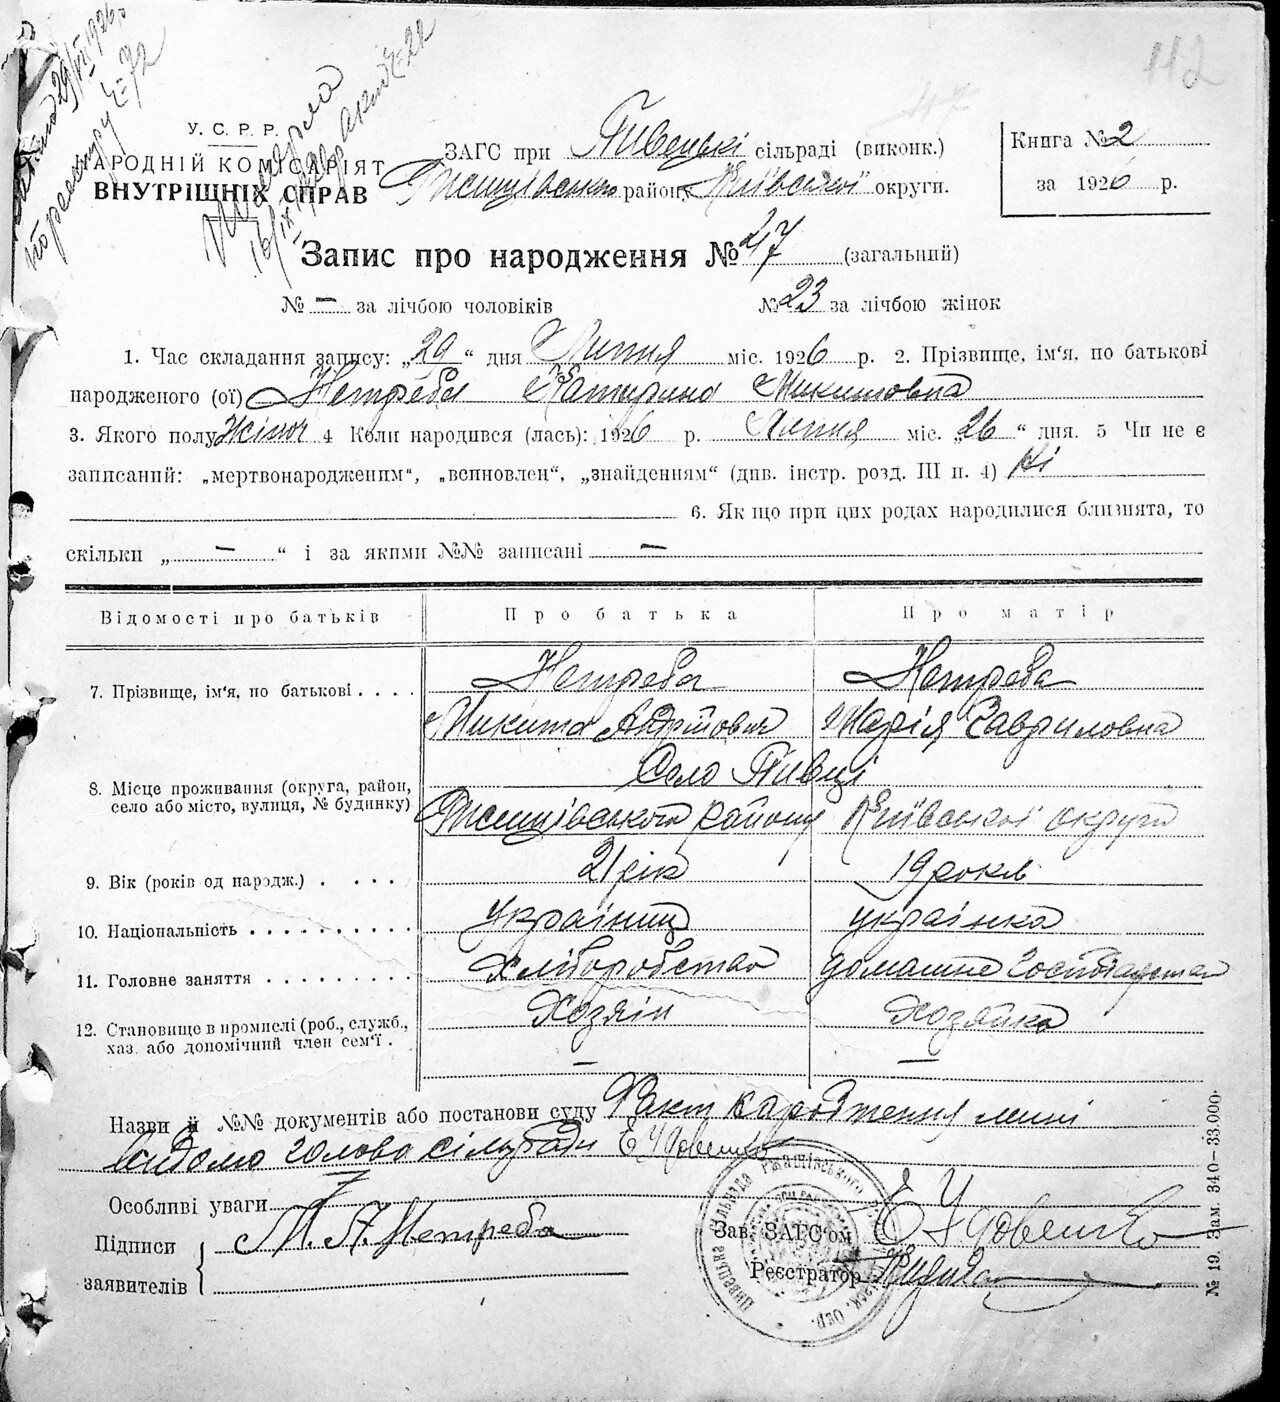 112
47
29/VII 1926 р.
по реєстру №72
Умерла
16/IX
У. С. Р. Р.
НАРОДНІЙ КОМІСАРІЯТ
ВНУТРІШНІХ СПРАВ
ЗАГС при Пивецькі сільраді (виконк.)
Ржищівського району „Київської" округи.
Книга № 2
за 1926 р.
Запис про народження № 47 (загальний)
№ – за лічбою чоловіків № 23 за лічбою жінок
1. Час складання запису: „29" дня Липня міс. 1926 р. 2. Прізвище, ім'я, по батькові
народженого (ої) Нетреба Катерина Микитовна
3. Якого полу Жіноч 4 Коли народився (лась): 1926 р. Липня міс. „26" дня. 5 Чи не є
записаний: „мертвонародженим", „всиновлен", „знайденням" (див. інстр. розд. III п. 4) Ні
6. Як що при цих родах народилися близнята, то
скільки „ – " і за якими №№ записані –
Відомості про батьків Про батька Про матір
7. Прізвище, ім'я, по батькові . . . . Нетреба Нетреба
Микита Андрійович Марія Гавриловна
8. Місце проживання (округа, район, село або місто, вулиця, № будинку) Село Пивці
Ржищівського району Київської округи
9. Вік (років од народж.) . . . . 21 рік 19 років
10. Національність . . . . . . . . . . українец українка
11. Головне заняття . . . . . . . . Хліборобство домашнє Господарство
12. Становище в промислі (роб., служб., хаз. або допомічний член сем'ї . Хозяін Хозяйка
– –
Назви й №№ документів або постанови суду Факт народження мині
відомо голова сільради Е Удовенко
Особливі уваги
Підписи заявителів М. А. Нетреба
Зав. ЗАГС'ом Е Удовенко
Реєстратор
Пивецька сільрада Ржищівського
Окр.
№ 19. Зам. 340–33.000.